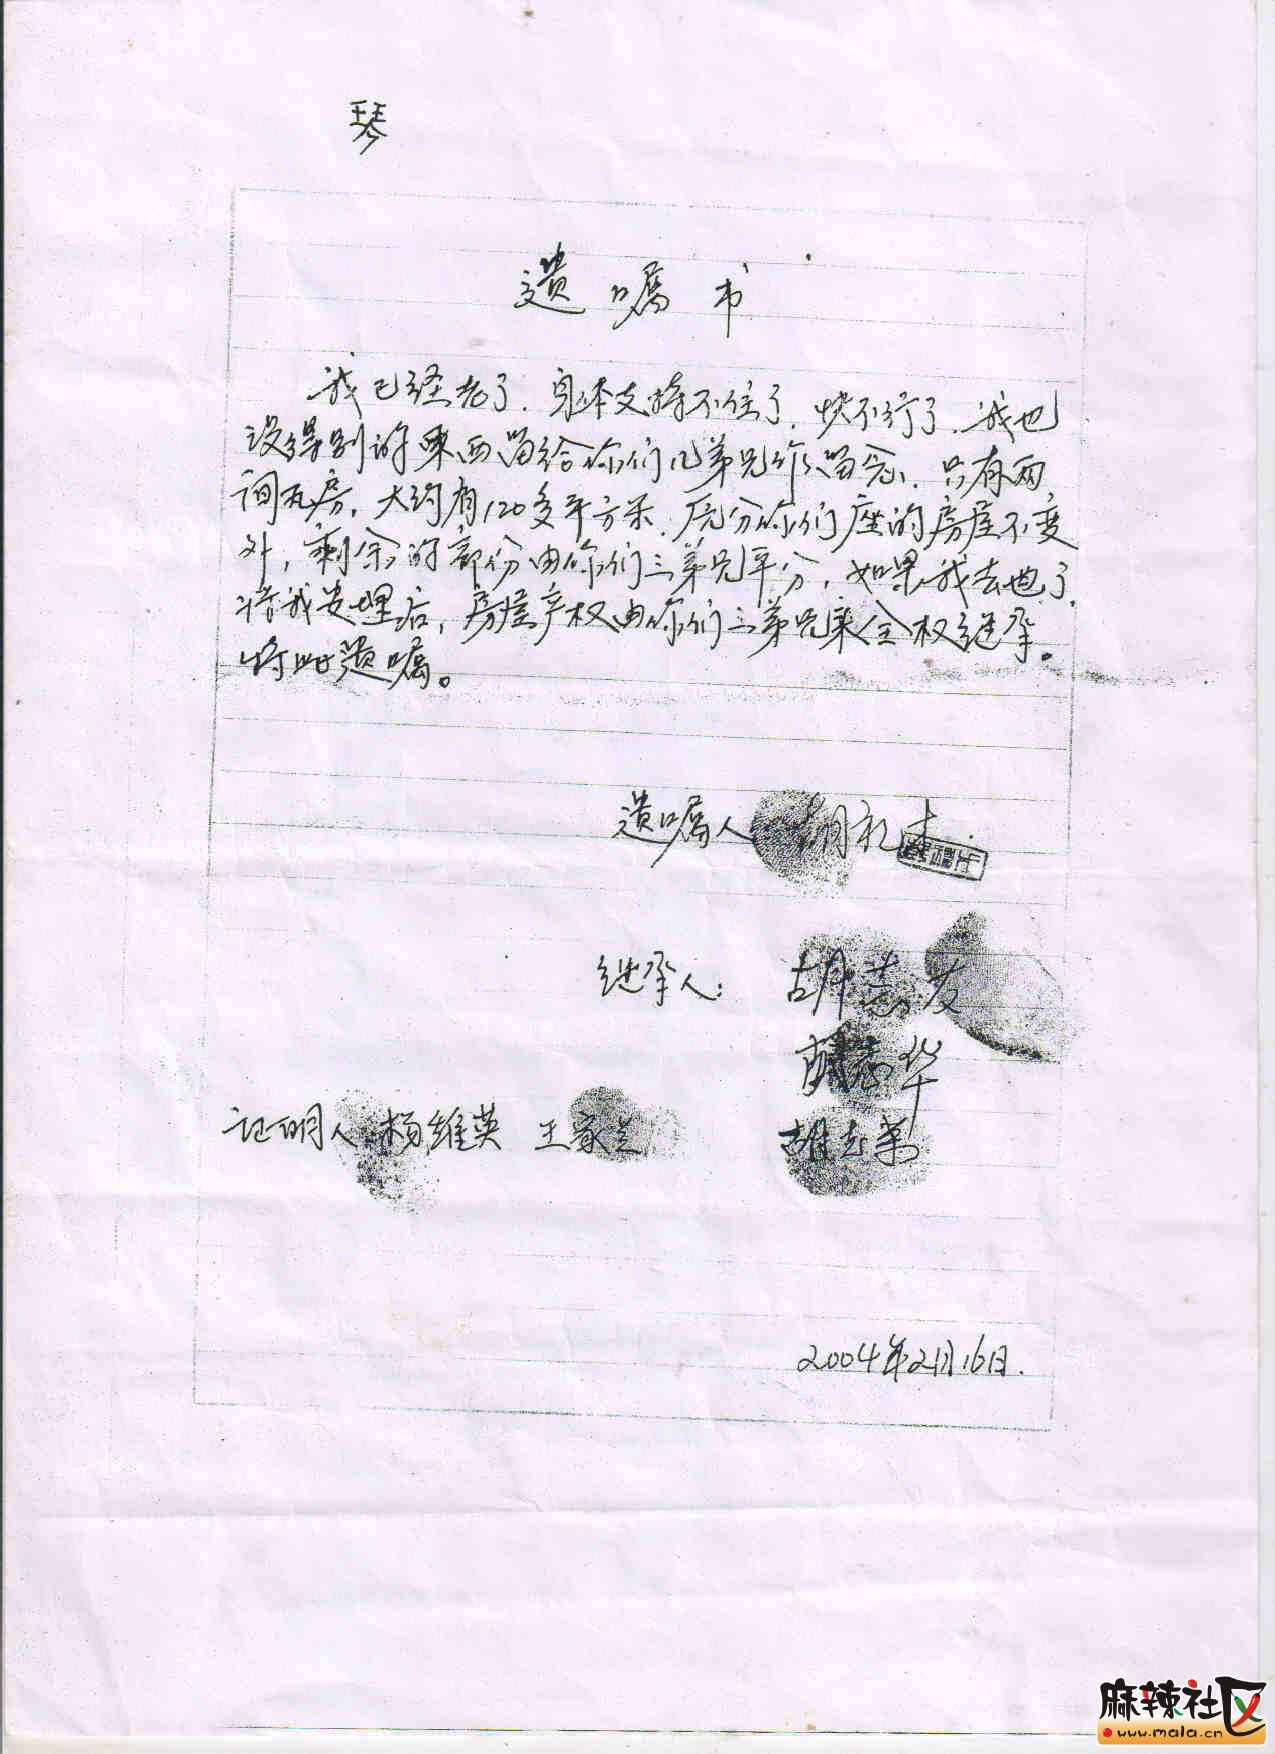 琴
遗嘱书
我已经老了.身体支持不住了.快不行了.我也
没得别的东西留给你们几弟兄作留念.只有两
间瓦房,大约有120多平方米.除分你们座的房屋不变
外,剩余的部份由你们三弟兄平分,如果我去世了.
将我安埋后,房屋产权由你们三弟兄来全权继承。
特此遗嘱。
遗嘱人 胡礼
继承人: 胡志友
胡志华
证明人 杨维英 王家兰 胡志荣
2004年2月16日.
麻辣社区
www.mala.cn